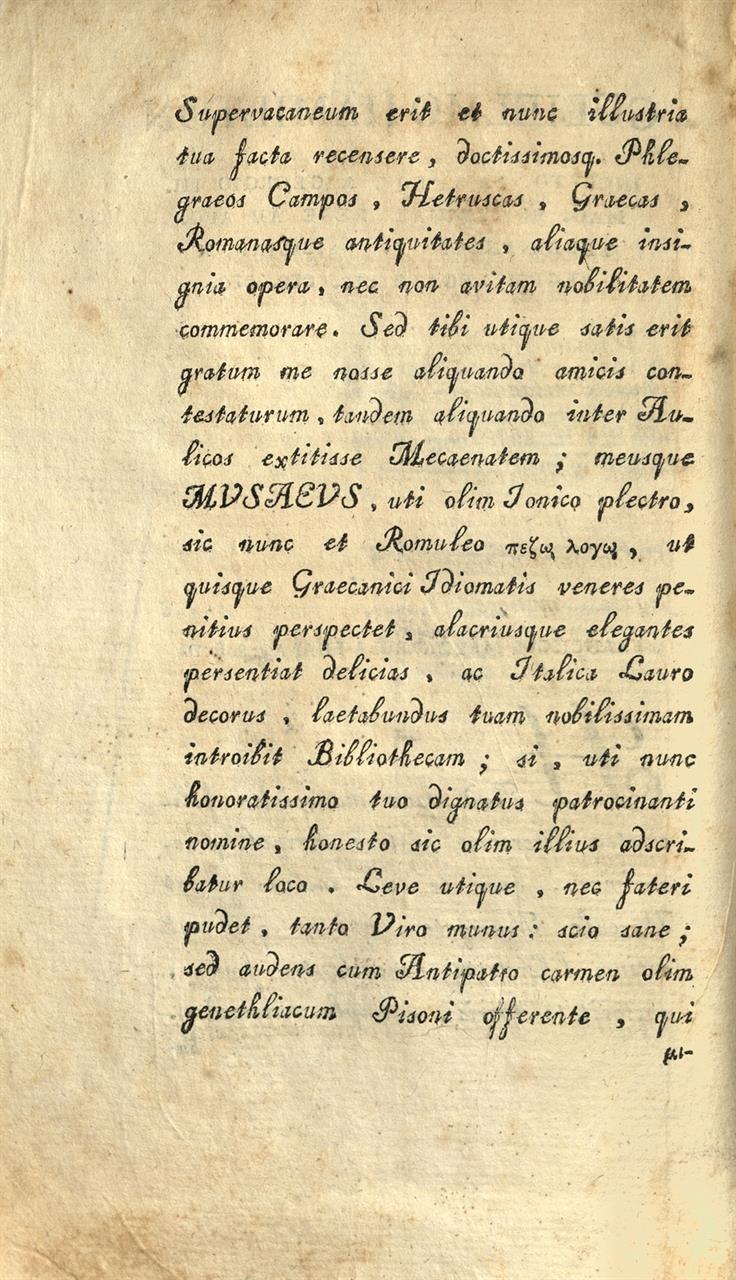 Supervacaneum erit et nunc illustria
tua facta recensere, doctissimosq. Phle-
graeos Campos, Hetruscas, Graecas,
Romanasque antiquitates, aliaque insi-
gnia opera, nec non avitam nobilitatem
commemorare. Sed tibi utique satis erit
gratum me nosse aliquando amicis con-
testaturum, tandem aliquando inter Au-
licos extitisse Mecaenatem; meusque
MVSAEVS, uti olim Ionico plectro,
sic nunc et Romuleo πεζῳ λογῳ, ut
quisque Graecanici Idiomatis veneres pe-
nitius perspectet, alacriusque elegantes
persentiat delicias, ac Italica Lauro
decorus, laetabundus tuam nobilissimam
introibit Bibliothecam; si, uti nunc
honoratissimo tuo dignatus patrocinanti
nomine, honesto sic olim illius adscri-
batur loco. Leve utique, nec fateri
pudet, tanto Viro munus: scio sane;
sed audens cum Antipatro carmen olim
genethliacum Pisoni offerente, qui
μι-